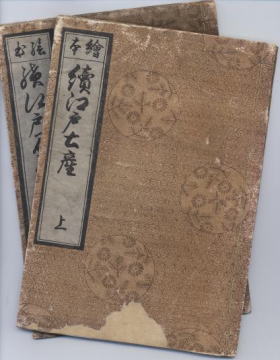 繪本
續江戸土産
上
繪本
續江戸